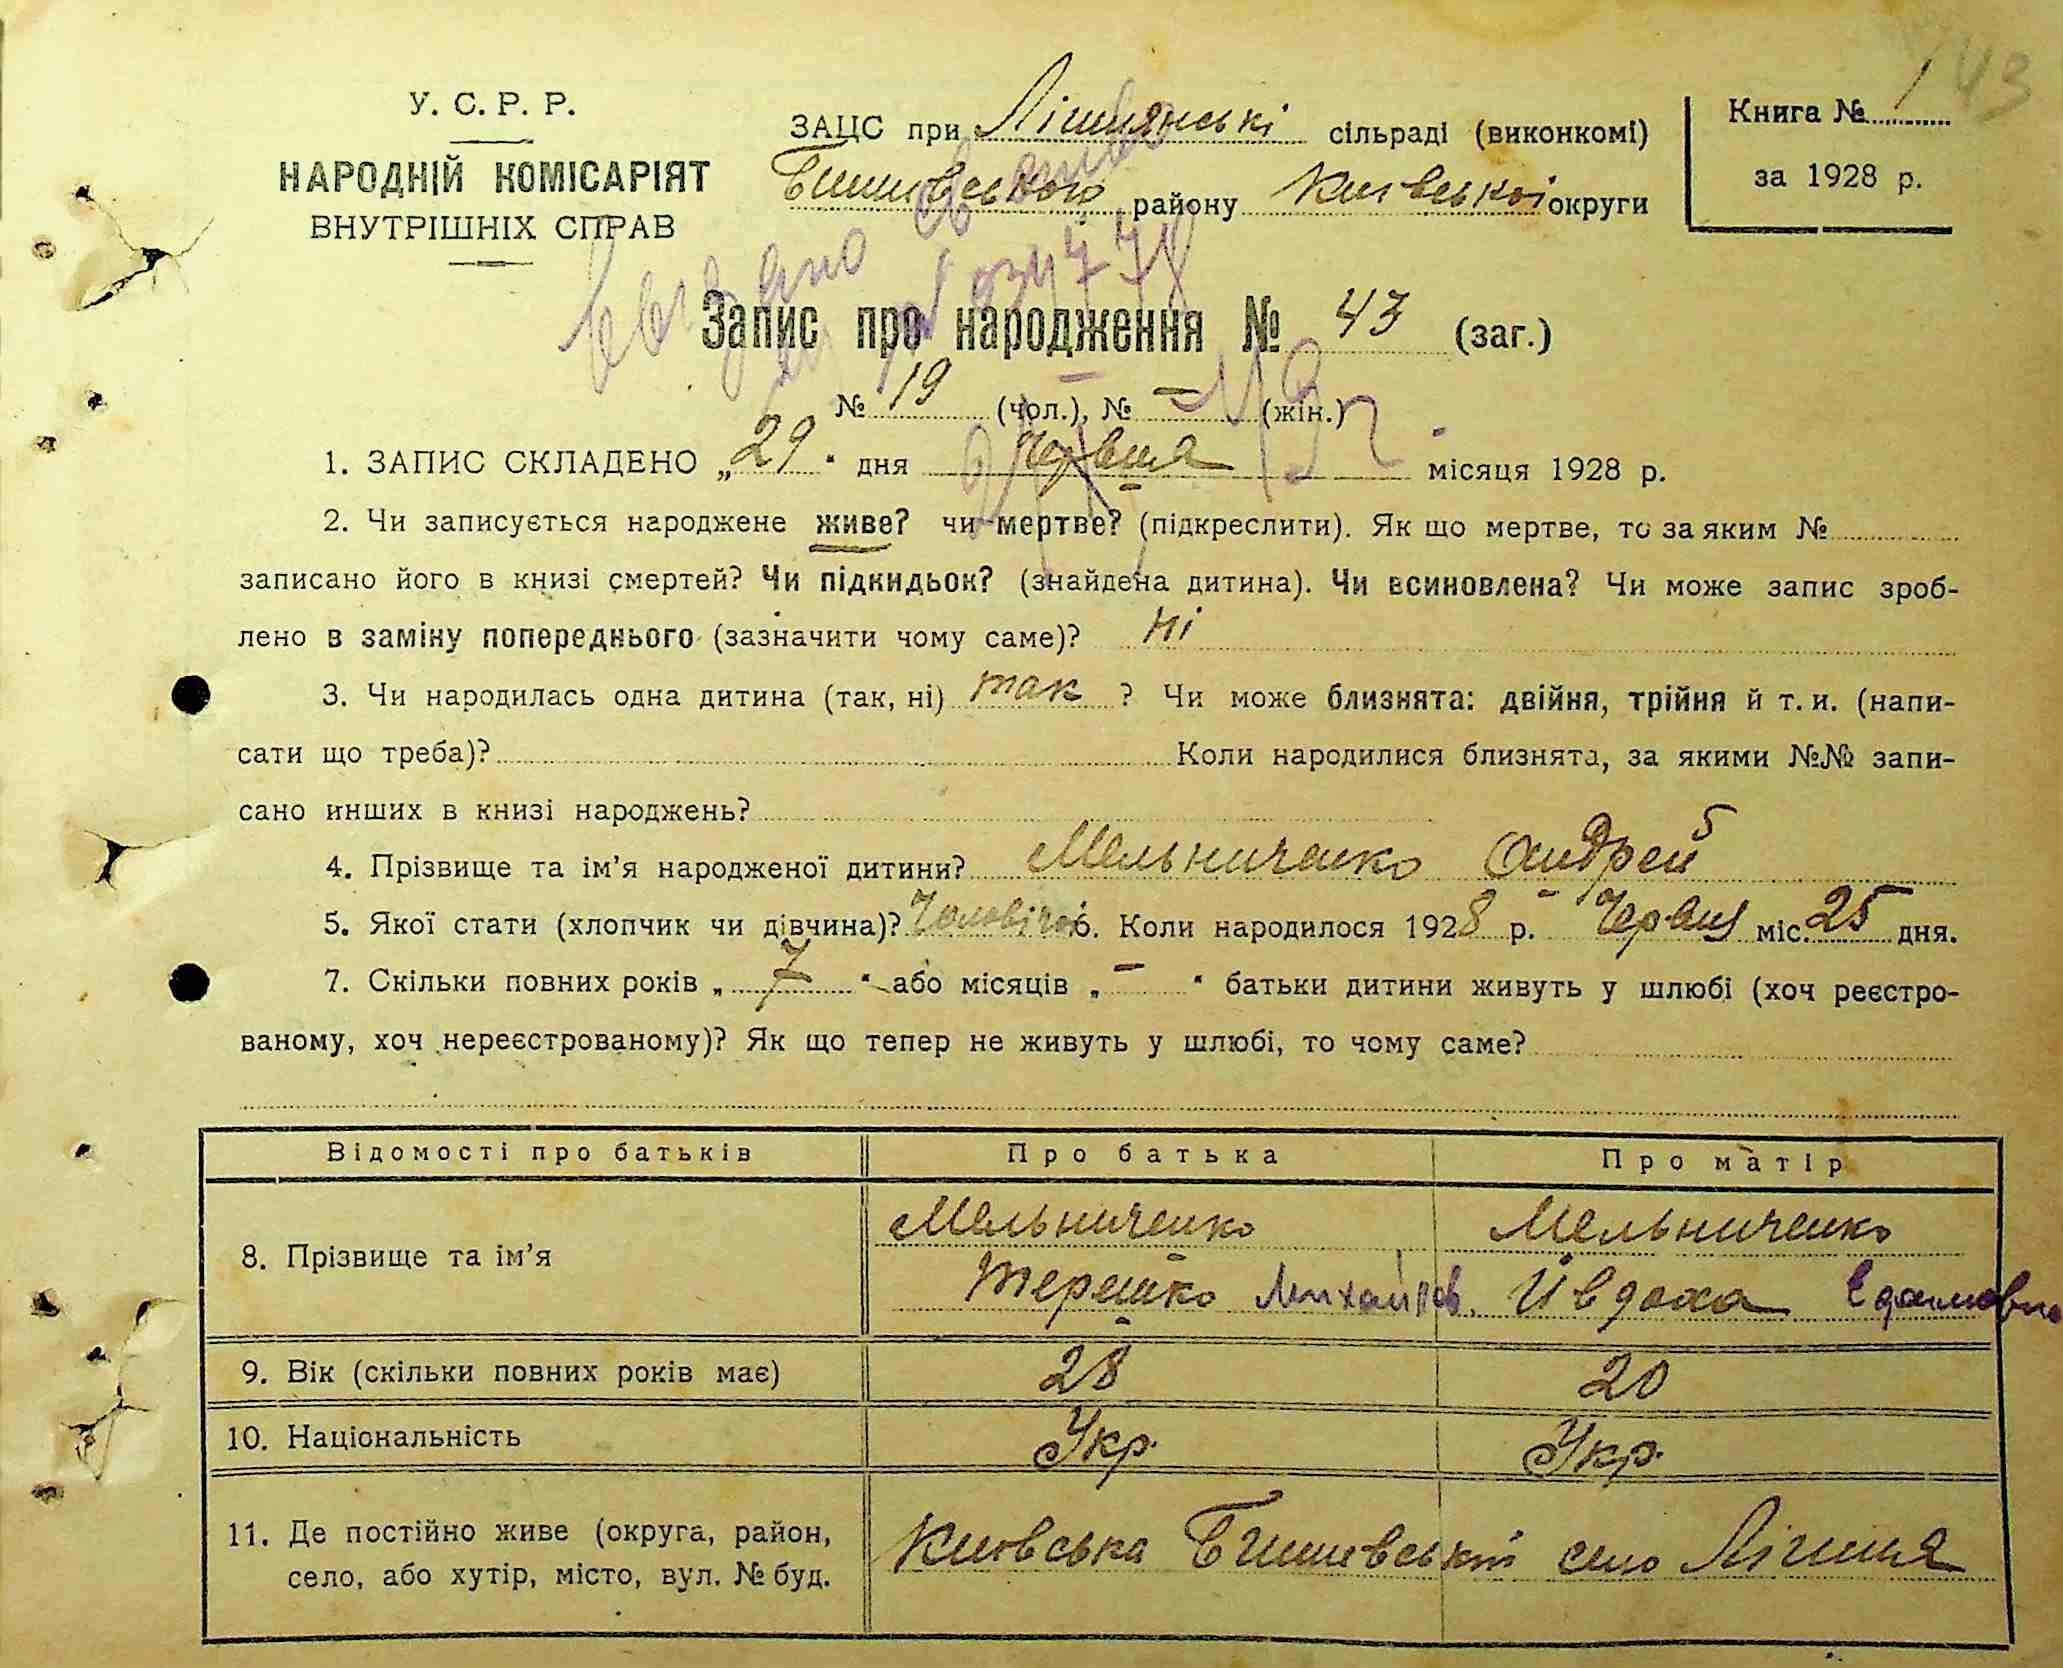 43
У. С. Р. Р.
НАРОДНІЙ КОМІСАРІЯТ
ВНУТРІШНІХ СПРАВ
ЗАЦС при Лішнянські сільраді (виконкомі)
Бишівського району Київської округи
Книга № 1
за 1928 р.
Запис про народження № 43 (заг.)
№ 19 (чол.), № – (жін.)
1. ЗАПИС СКЛАДЕНО „29“ дня Червня місяця 1928 р.
2. Чи записується народжене живе? чи мертве? (підкреслити). Як що мертве, то за яким №
записано його в книзі смертей? Чи підкидьок? (знайдена дитина). Чи всиновлена? Чи може запис зроб-
лено в заміну попереднього (зазначити чому саме)? Ні
3. Чи народилась одна дитина (так, ні) так ? Чи може близнята: двійня, трійня й т. и. (напи-
сати що треба)? Коли народилися близнята, за якими №№ запи-
сано инших в книзі народжень?
4. Прізвище та ім’я народженої дитини? Мельниченко Андрей
5. Якої стати (хлопчик чи дівчина)? Чоловічої 6. Коли народилося 1928 р. Червня міс. 25 дня.
7. Скільки повних років „7“ або місяців „–“ батьки дитини живуть у шлюбі (хоч реєстро-
ваному, хоч нереєстрованому)? Як що тепер не живуть у шлюбі, то чому саме?
Відомості про батьків Про батька Про матір
8. Прізвище та ім’я
Мельниченко Мельниченко
Терешко Михайлов. Ївдоха
9. Вік (скільки повних років має) 28 20
10. Національність Укр. Укр.
11. Де постійно живе (округа, район,
село, або хутір, місто, вул. № буд.
Київська Бишівський село Лішня